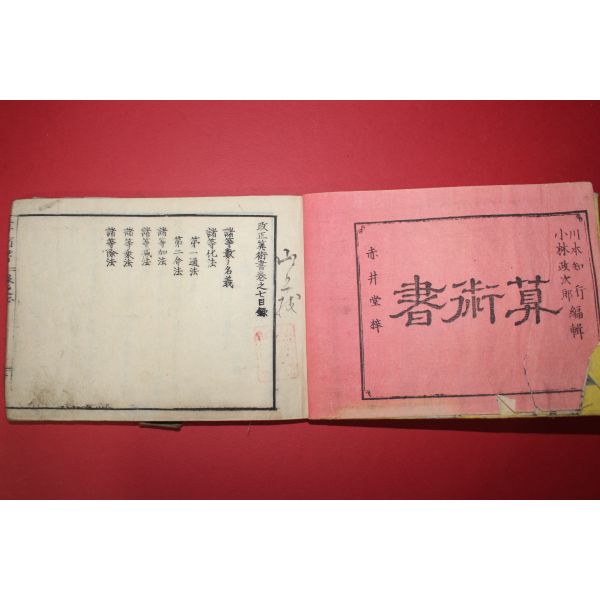 川本知行編輯
小林政次郎
算術書
赤井堂梓
改正算術書巻之七目録
諸等數ノ名義
諸等化法
第一通法
第二命法
諸等加法
諸等减法
諸等乗法
諸等除法